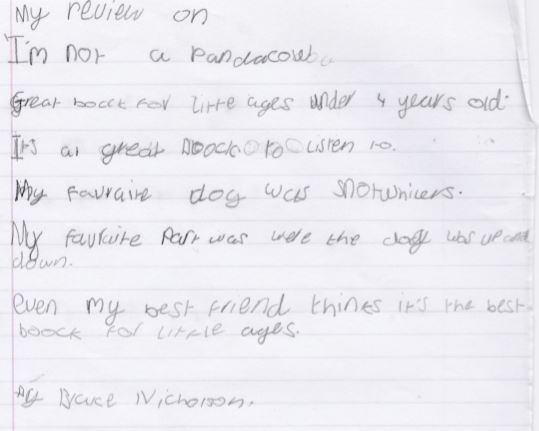 My review on
I'm not a Pandacow
Great boock for little ages under 4 years old.
It's a great boock to listen to.
My favraite dog was snotwhicers.
My favraite Part was were the dog was up and
down.
even my best friend thinks it's the best
boock for little ages.
By Bruce Nicholson.